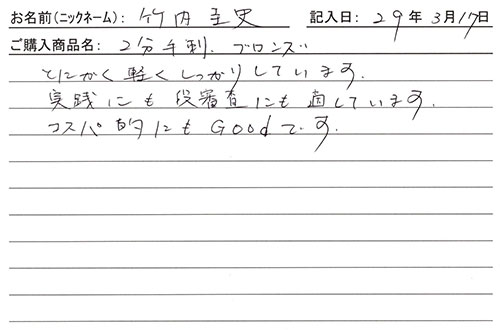 お名前(ニックネーム): 竹内圭史 記入日: 29年 3月17日
ご購入商品名: 2分手刺 ブロンズ
とにかく軽くしっかりしています.
実践にも段審査にも適しています.
コスパ的にもGoodです.